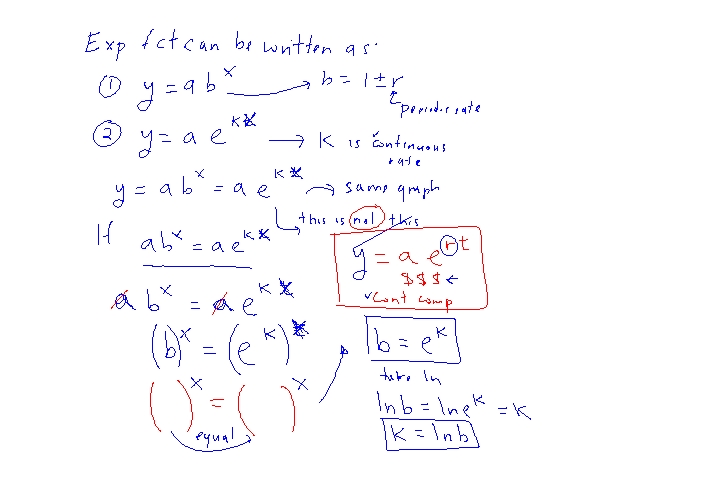 Exp fct can be written as:
① y = ab^x → b = 1 ± r
periodic rate
② y = a e^{kx} → k is continuous
rate
y = ab^x = a e^{kx} → same graph
this is not this
If ab^x = a e^{kx}
y = a e^{rt}
$$$ ←
✓cont comp
a b^x = a e^{kx}
(b)^x = (e^k)^x
b = e^k
( )^x = ( )^x
equal
take ln
ln b = ln e^k = k
k = ln b